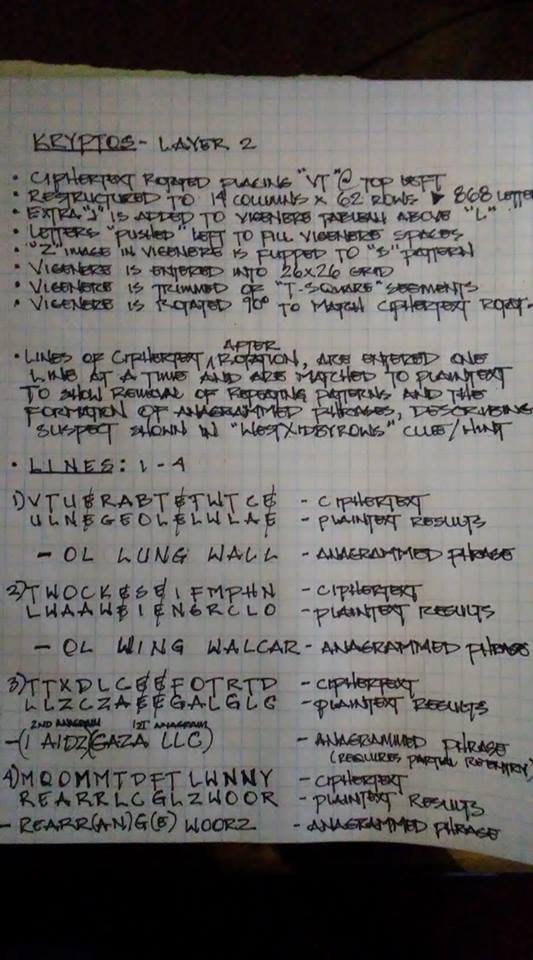 KRYPTOS - LAYER 2
• CIPHERTEXT ROTATED PLACING "VT" @ TOP LEFT
• RESTRUCTURED TO 14 COLUMNS X 62 ROWS ▶ 868 LETTE
• EXTRA "J" IS ADDED TO VIGENERE TABLEAU ABOVE "L"
• LETTERS "PUSHED" LEFT TO FILL VIGENERE SPACES
• "Z" IMAGE IN VIGENERE IS FLIPPED TO "S" PATTERN
• VIGENERE IS ENTERED INTO 26X26 GRID
• VIGENERE IS TRIMMED OF "T-SQUARE" SEGMENTS
• VIGENERE IS ROTATED 90° TO MATCH CIPHERTEXT ROTAT-
AFTER
• LINES OF CIPHERTEXT ROTATION, ARE ENTERED ONE
LINE AT A TIME AND ARE MATCHED TO PLAINTEXT
TO SHOW REMOVAL OF REPEATING PATTERNS AND THE
FORMATION OF ANAGRAMMED PHRASES, DESCRIBING
SUSPECT SHOWN IN "WESTXIDBYROWS" CLUE/HINT
• LINES: 1-4
1) V T U E R A B T E T W T C E - CIPHERTEXT
U L N E G E O L E L W L A E - PLAINTEXT RESULTS
- OL LUNG WALL - ANAGRAMMED PHRASE
2) T W O C K E S E I F M P H N - CIPHERTEXT
L W A A W E I E N G R C L O - PLAINTEXT RESULTS
- OL WING WALCAR - ANAGRAMMED PHRASE
3) T T X D L C E E F O T R T D - CIPHERTEXT
L L Z C Z A E E G A L G L C - PLAINTEXT RESULTS
2ND ANAGRAM 1ST ANAGRAM
- (I AIDZ)(GAZA LLC) - ANAGRAMMED PHRASE
(REQUIRES PARTIAL REENTRY)
4) M Q O M M T D F T L W N N Y - CIPHERTEXT
R E A R R L C G L Z W O O R - PLAINTEXT RESULTS
- REARR(AN)G(E) WOORZ - ANAGRAMMED PHRASE